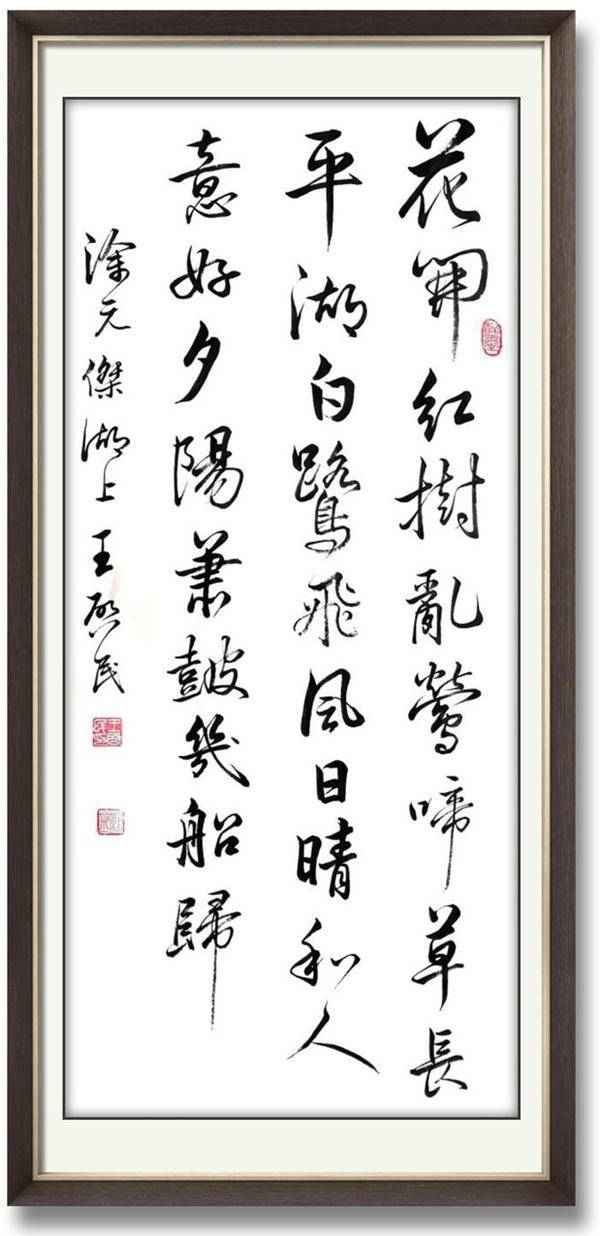 花開紅樹亂鶯啼草長
平湖白鷺飛風日晴和人
意好夕陽萧鼓幾船歸
涂元傑湖上 王啟民